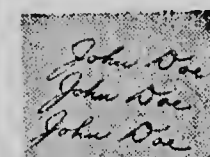 John Doe
John Doe
John Doe